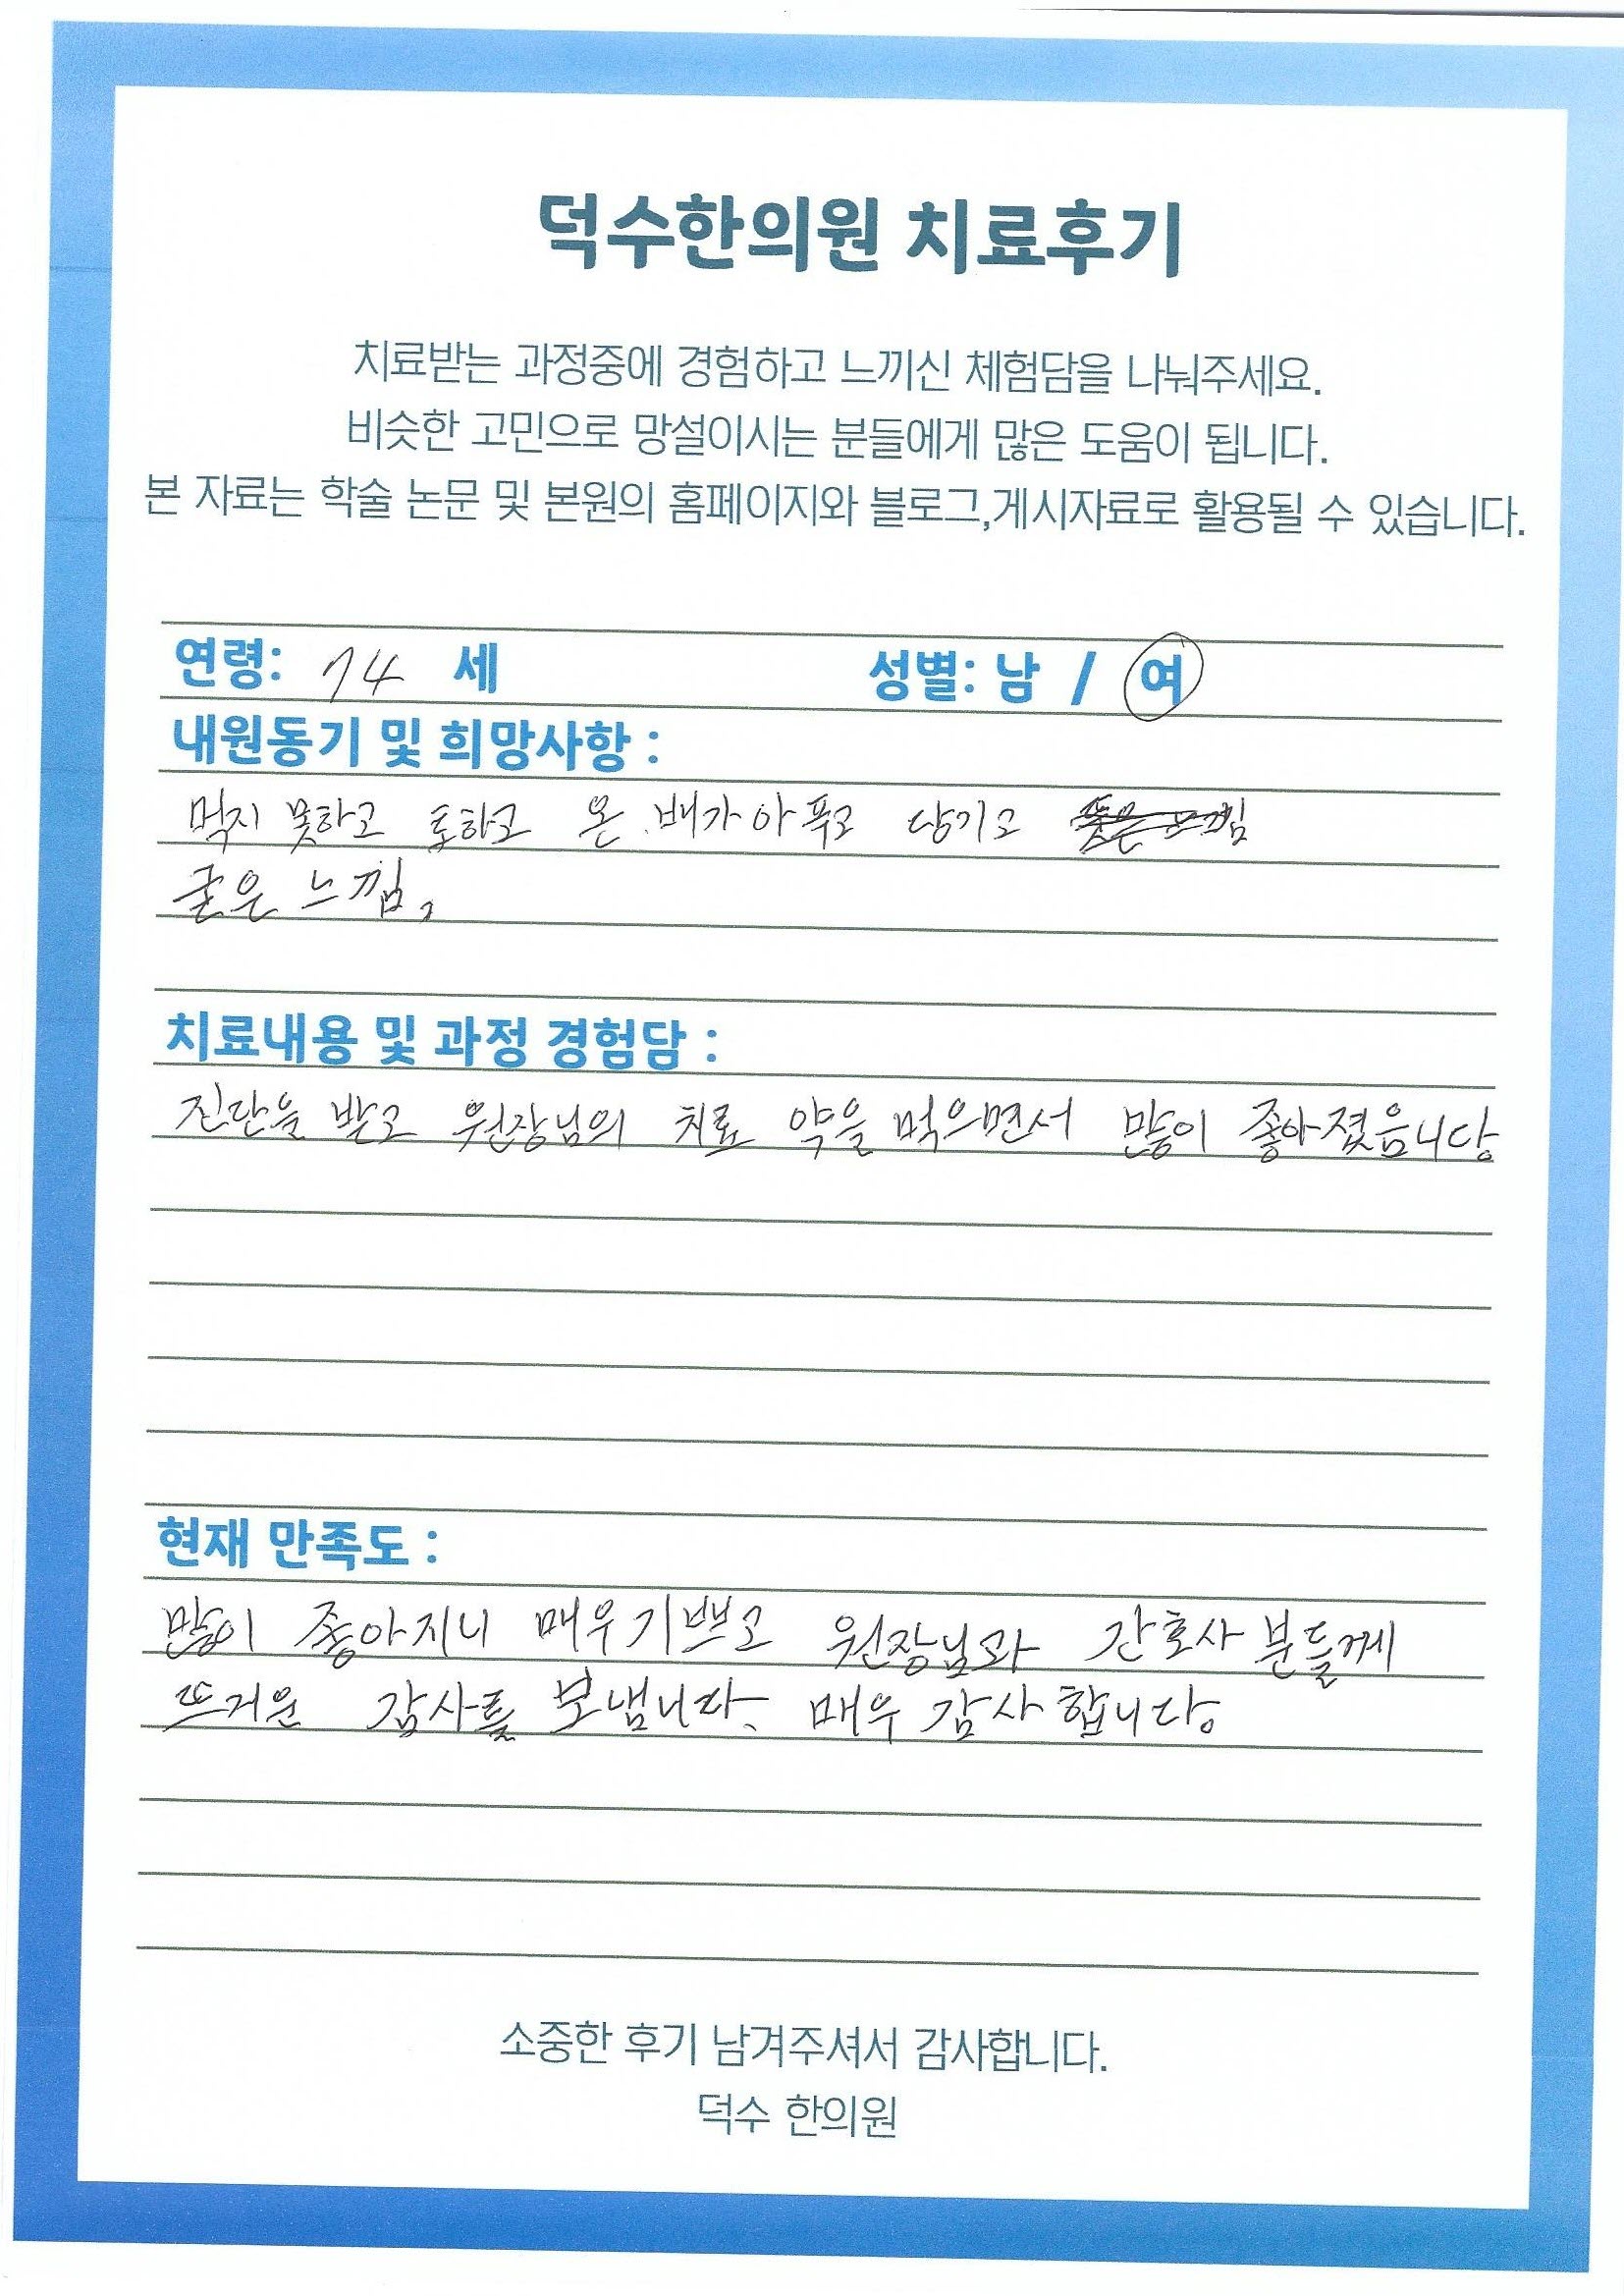 덕수한의원 치료후기
치료받는 과정중에 경험하고 느끼신 체험담을 나눠주세요.
비슷한 고민으로 망설이시는 분들에게 많은 도움이 됩니다.
본 자료는 학술 논문 및 본원의 홈페이지와 블로그,게시자료로 활용될 수 있습니다.
연령: 74 세 성별: 남 / 여
내원동기 및 희망사항 :
먹지 못하고 토하고 온 배가 아푸고 당기고
굳은 느낌,
치료내용 및 과정 경험담 :
진단을 받고 원장님의 치료 약을 먹으면서 많이 좋아졌읍니다
현재 만족도 :
많이 좋아지니 매우 기쁘고 원장님과 간호사 분들께
뜨거운 감사를 보냅니다. 매우 감사합니다.
소중한 후기 남겨주셔서 감사합니다.
덕수 한의원